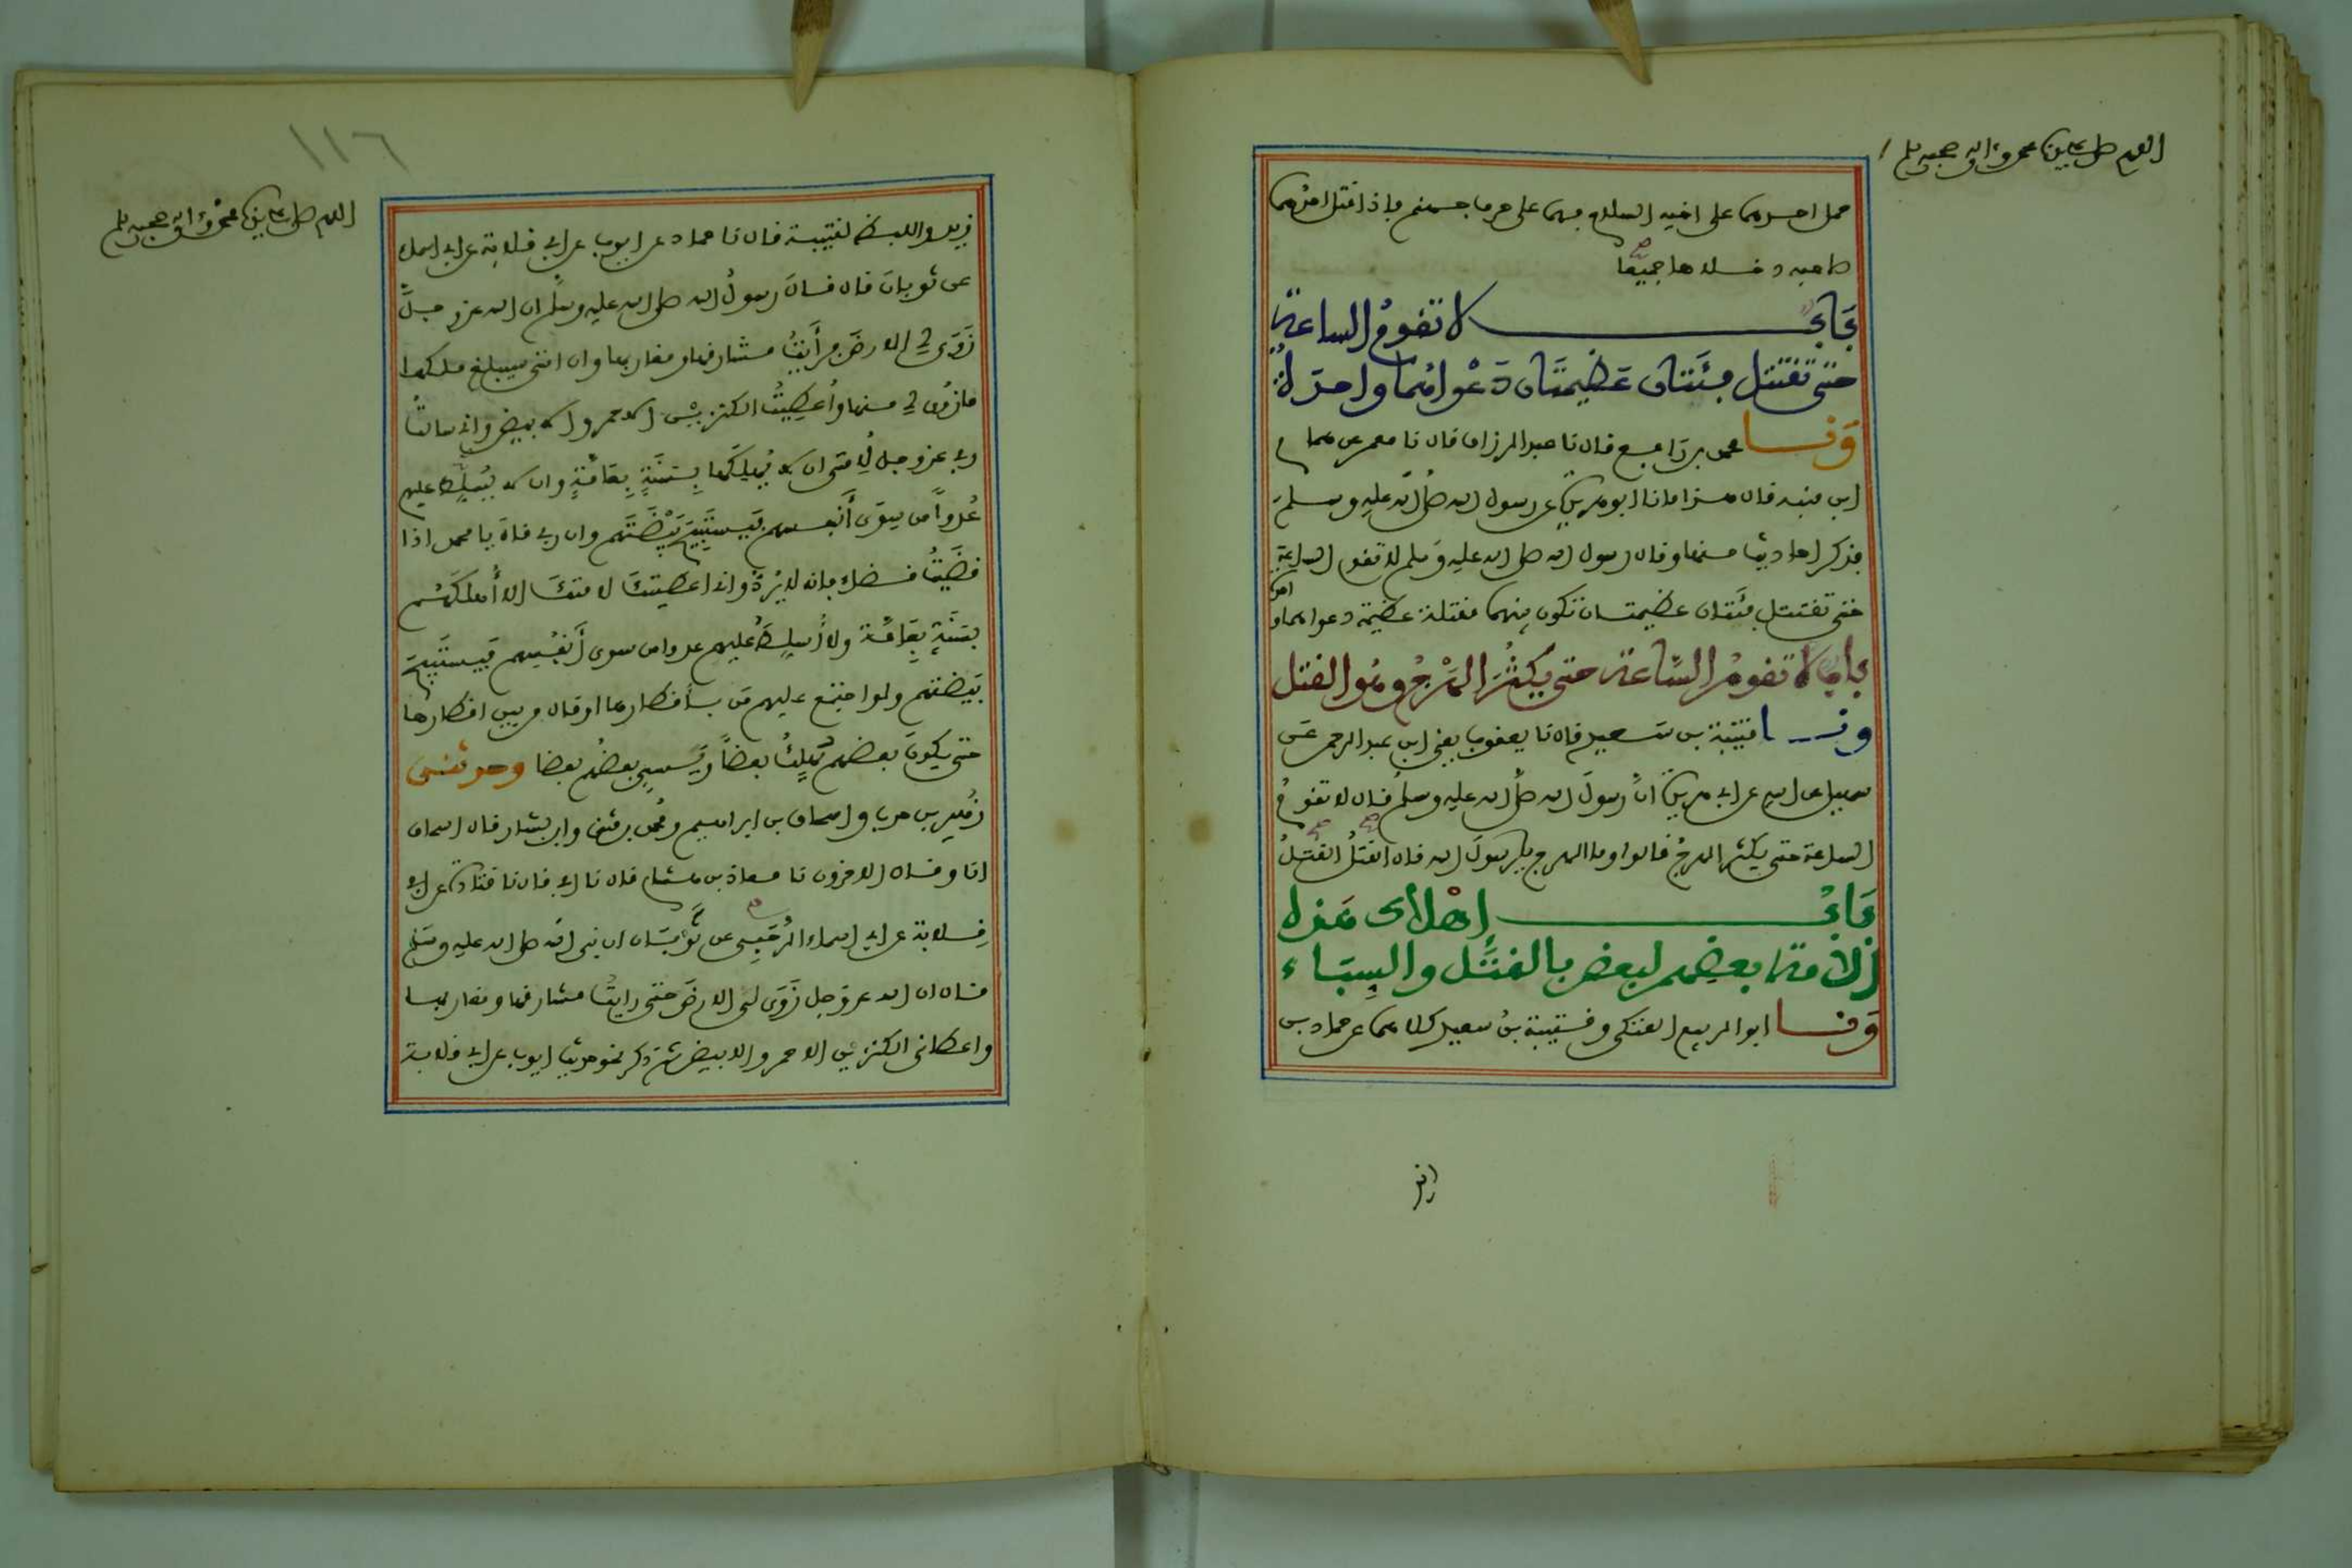 اللهم صل على سيدنا محمد وءاله وصحبه وسلم
حمل احدهما على اخيه السلاح فهما على جرف جهنم فاذا قتل احدهما
صاحبه دخلاها جميعا
بَابٌ لا تقومُ الساعة
حتى تقتتل فئتان عظيمتان دعواهما واحدة
وثنا محمد بن رافع قال نا عبد الرزاق قال نا معمر عن همام
ابن منبه قال هذا ما نا ابو هريرة عن رسول الله صلى الله عليه وسلم
فذكر احاديث منها وقال رسول الله صلى الله عليه وسلم لا تقوم الساعة
حتى تقتتل فئتان عظيمتان تكون بينهما مقتلة عظيمة دعواهما واحدة
باب لا تقوم الساعة حتى يكثر الهرج وهو القتل
وثنا قتيبة بن سعيد قال نا يعقوب يعني ابن عبد الرحمن عن
سهيل عن ابيه عن ابي هريرة ان رسول الله صلى الله عليه وسلم قال لا تقوم
الساعة حتى يكثر الهرج قالوا وما الهرج يا رسول الله قال القتل القتل
بَابُ إهلاك هذه
الامة بعضهم لبعض بالقتل والسباء
وثنا ابو الربيع العتكي وقتيبة بن سعيد كلاهما عن حماد بن
زيد
اللهم صل على سيدنا محمد وءاله وصحبه وسلم
١١٦
زيد واللفظ لقتيبة قال نا حماد عن ايوب عن ابي قلابة عن ابي اسماء
عن ثوبان قال قال رسول الله صلى الله عليه وسلم ان الله عز وجل
زوى لي الارض فرأيت مشارقها ومغاربها وان امتي سيبلغ ملكها
ما زوي لي منها واعطيت الكنزين الاحمر والابيض واني سالت
ربي عز وجل لامتي ان لا يهلكها بسنة بعامة وان لا يسلط عليهم
عدوا من سوى أنفسهم فيستبيح بيضتهم وان ربي قال يا محمد اذا
قضيت قضاء فانه لا يرد واني اعطيتك لامتك الا أهلكهم
بسنة بعامة ولا أسلط عليهم عدوا من سوى أنفسهم فيستبيح
بيضتهم ولو اجتمع عليهم من باقطارها او قال من بين اقطارها
حتى يكون بعضهم يهلك بعضا ويسبي بعضهم بعضا وحدثني
زهير بن حرب واسحاق بن ابراهيم ومحمد بن مثنى وابن بشار قال اسحاق
انا وقال الاخرون نا معاذ بن هشام قال نا ابي قال نا قتادة عن ابي
قلابة عن ابي اسماء الرحبي عن ثوبان ان نبي الله صلى الله عليه وسلم
قال ان الله عز وجل زوى لي الارض حتى رايت مشارقها ومغاربها
واعطاني الكنزين الاحمر والابيض ثم ذكر نحو حديث ايوب عن ابي قلابة